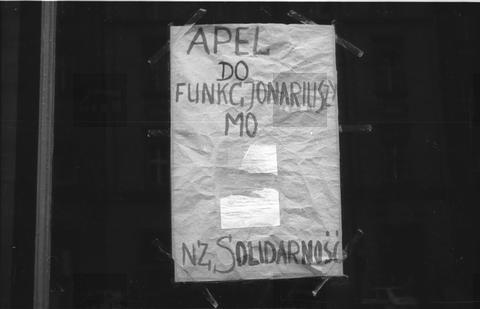 APEL
DO
FUNKCJONARIUSZY
MO
NZ, SOLIDARNOŚĆ